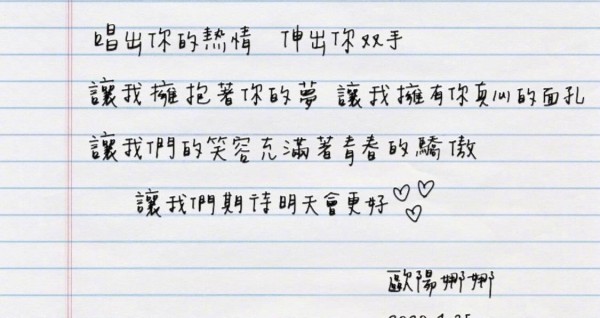 唱出你的熱情 伸出你双手
讓我擁抱著你的夢 讓我擁有你真心的面孔
讓我們的笑容充滿著青春的驕傲
讓我們期待明天會更好♡♡♡
歐陽娜娜